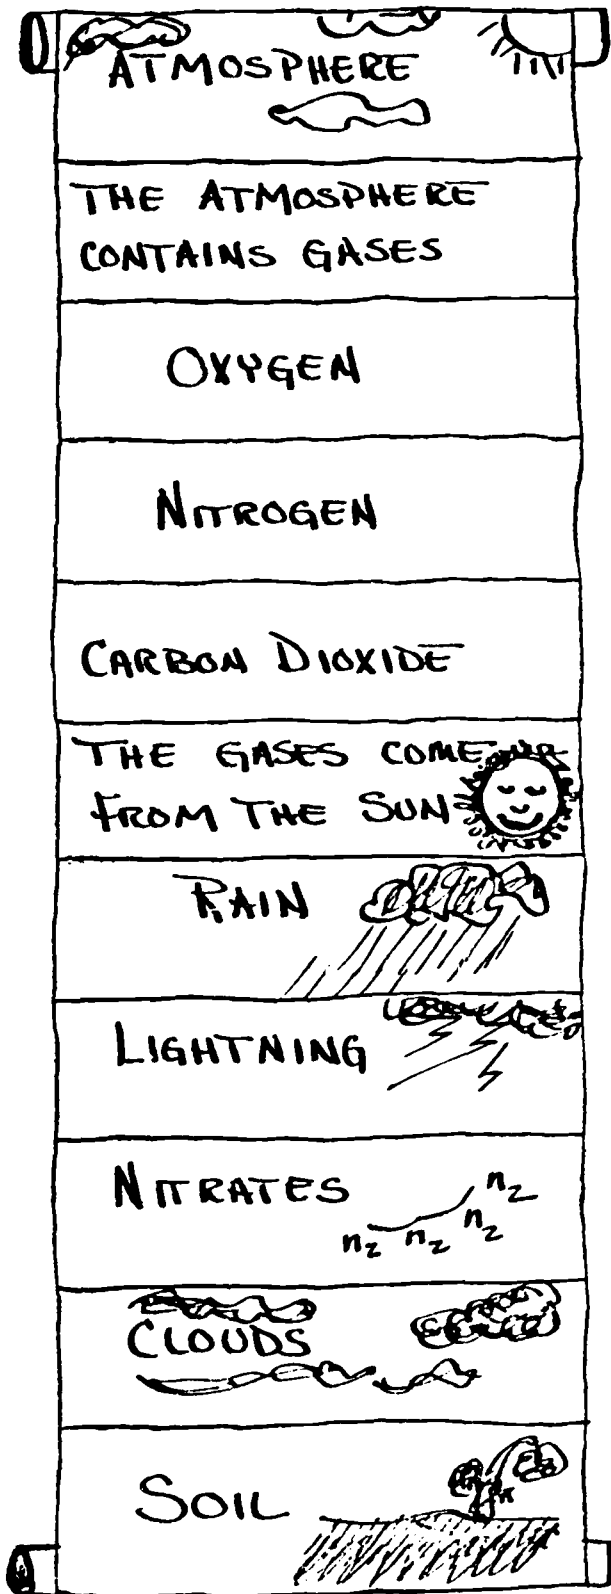 ATMOSPHERE
THE ATMOSPHERE
CONTAINS GASES
OXYGEN
NITROGEN
CARBON DIOXIDE
THE GASES COME
FROM THE SUN
RAIN
LIGHTNING
NITRATES
n2
n2 n2 n2
CLOUDS
SOIL